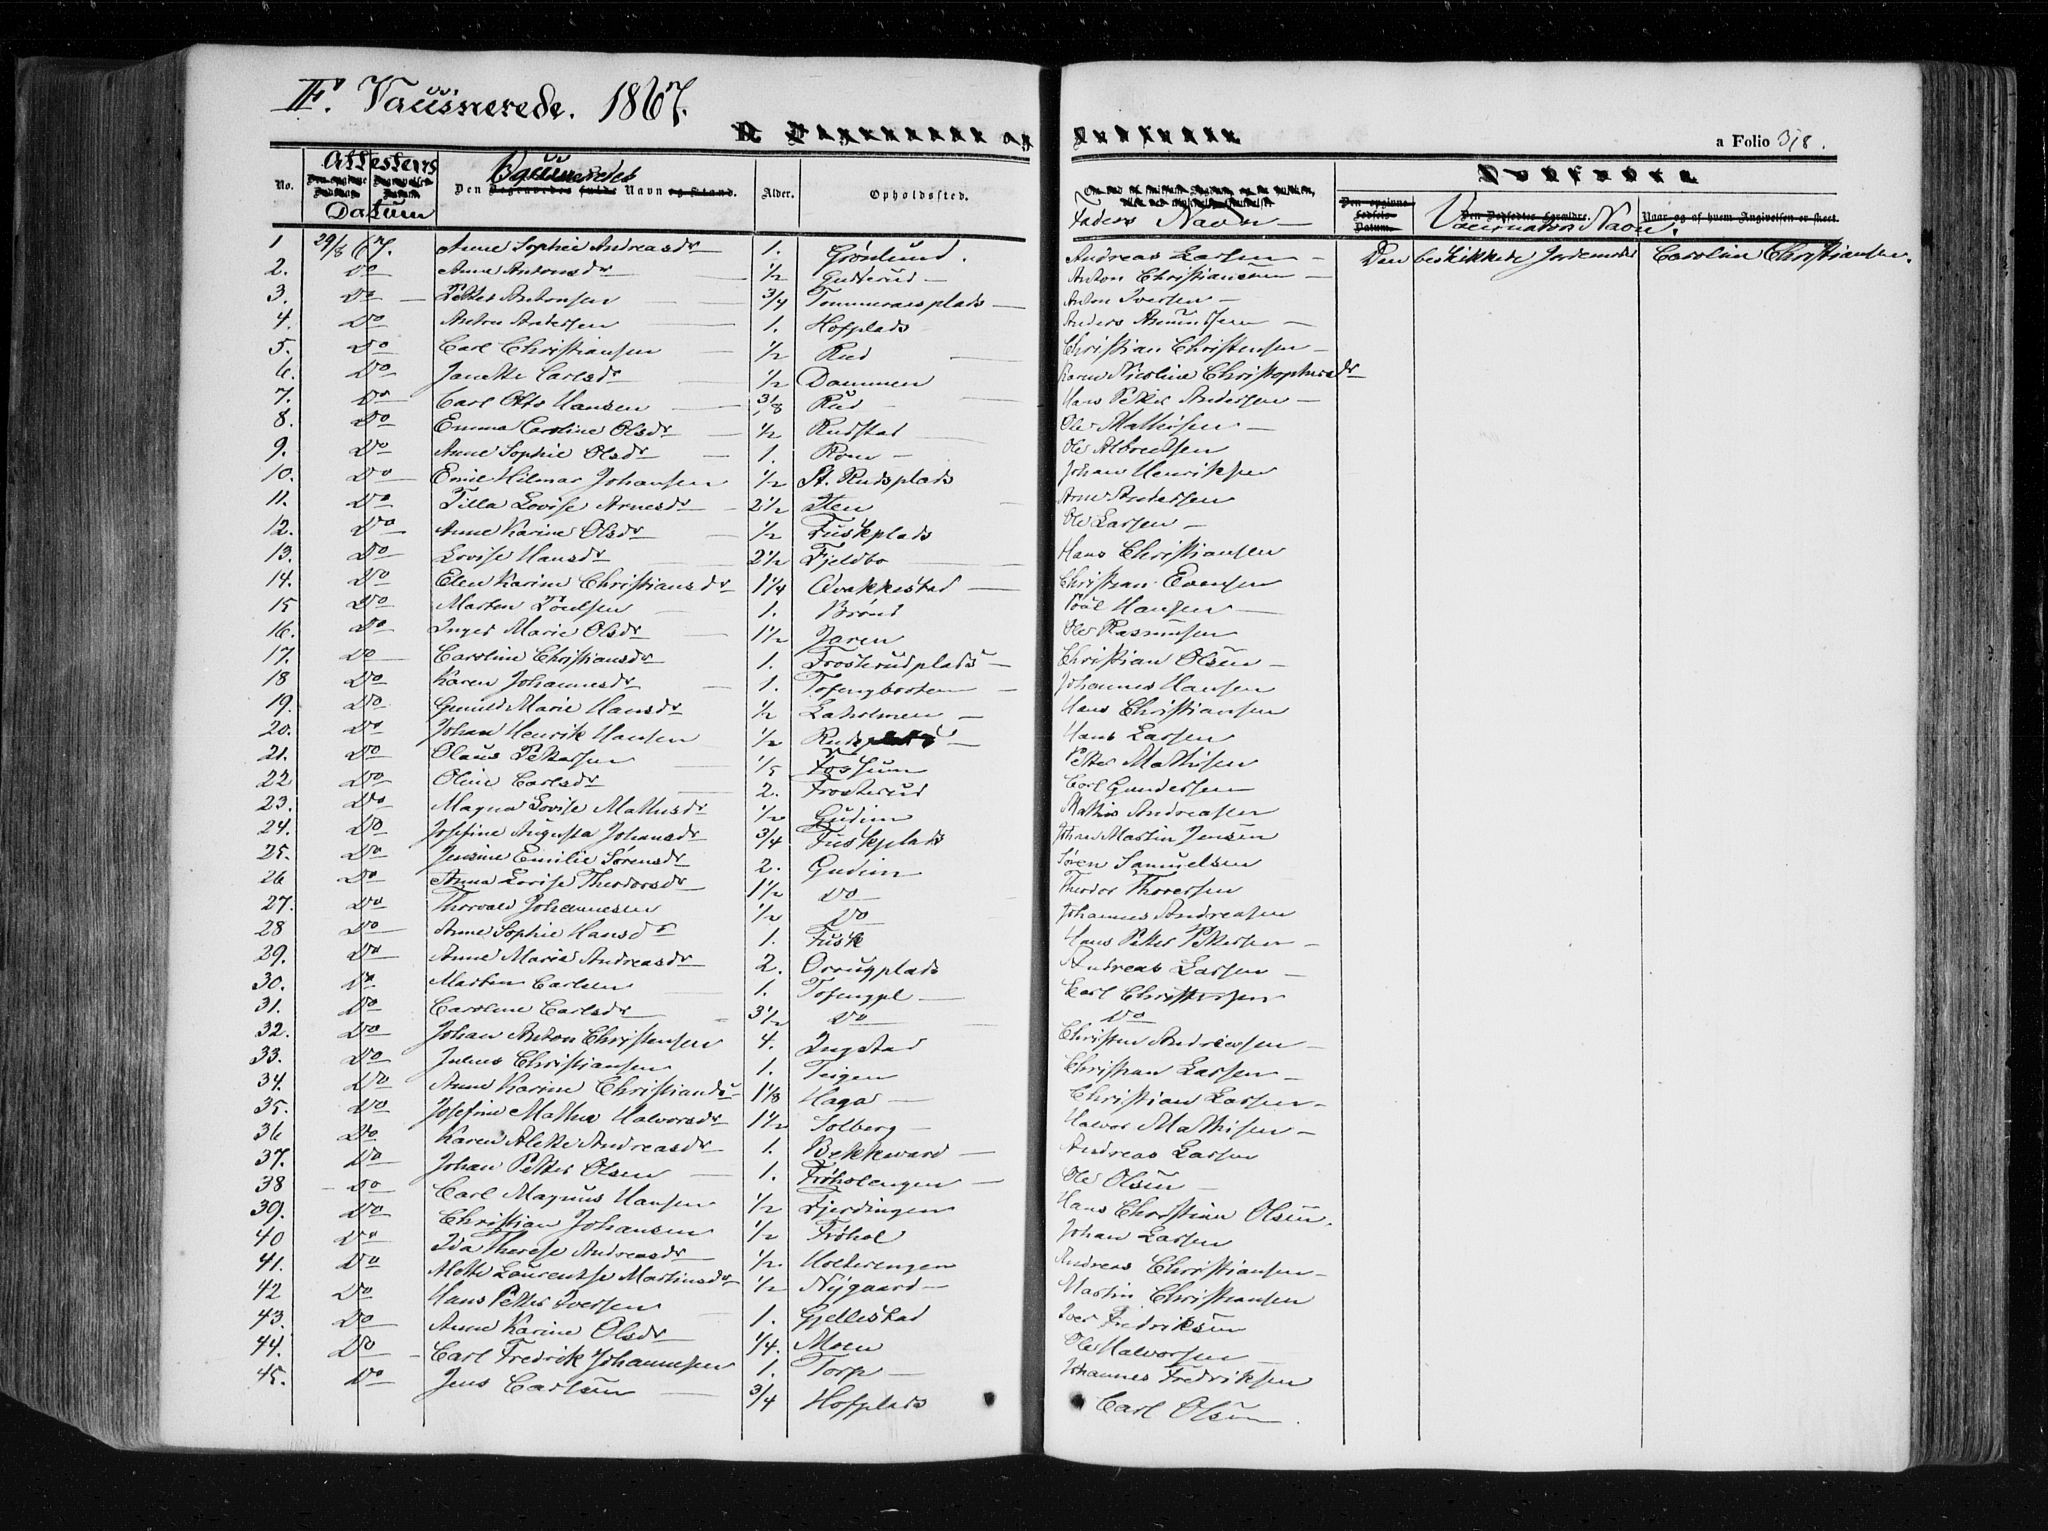 F. Vaccinerede. 1867.
a Folio 318.
No. Attestens Datum Den Vaccineredes Navn Alder. Opholdssted. Faders Navn Vaccinators Navn.
1 29/8 67. Anne Sophie Andreasdr 1. Grønlund. Andreas Larsen Den beskikkede Jordemoder Caroline Christiansen.
2. Do Anna Antonsdr 1/2 Gutterud Anton Christiansen
3. Do Petter Antonsen 3/4 Tommeraasplads Anton Iversen
4. Do Anton Andersen 1. Hofplads Anders Amundsen
5. Do Carl Christiansen 1/2 Rud Christian Christensen
6. Do Janette Carlsdr 1/2 Dammen Karen Nicoline Christophersdr
7. Do Carl Otto Hansen 3/8 Rud Hans Petter Andersen
8. Do Emma Caroline Olsdr 1/2 Rudstad Ole Mathisen
9. Do Anne Sophie Olsdr 1. Rom Ole Albretsen
10. Do Emil Hilmar Johansen 1/2 St. Rudsplads Johan Henriksen
11. Do Tilla Lovise Arnesdr 2 1/2 Sten Arne Andersen
12. Do Anne Karine Olsdr 1/2 Fuskplads Ole Larsen
13. Do Lovise Hansdr 2 1/2 Fjeldbo Hans Christiansen
14. Do Elen Karine Christiansdr 1 1/4 Qvakkestad Christian Evensen
15 Do Marten Poulsen 1. Brønd Poul Hansen
16. Do Inger Marie Olsdr 1 1/2 Jaren Ole Rasmusen
17. Do Caroline Christiansdr 1. Frosterudplads Christian Olsen
18 Do Karen Johannesdr 1. Tofengbraaten Johannes Hansen
19. Do Gunild Marie Hansdr 1/2 Laholmen Hans Christiansen
20. Do Johan Henrik Hansen 1/2 Rudsplads Hans Larsen
21. Do Olaus Pettersen 1/5 Fossum Petter Mathisen
22 Do Oline Carlsdr 2. Frosterud Carl Gundersen
23. Do Magna Lovise Mathisdr 1/2 Gudim Mathis Andreasen
24. Do Josefine Augusta Johansdr 3/4 Fuskplads Johan Martin Jensen
25. Do Jensine Emilie Sørensdr 2. Gudim Søren Samuelsen
26 Do Anna Lovise Theodorsdr 1 1/2 Do Theodor Thoresen
27. Do Thorvald Johannesen 1/2 Do Johannes Andreasen
28 Do Anne Sophie Hansdr 1. Fusk Hans Petter Pettersen
29. Do Anne Maria Andreasdr 2. Orrugplads Andreas Larsen
30. Do Marten Carlsen 1. Tofengpl Carl Christensen
31. Do Caroline Carlsdr 3 1/2 Do Do
32. Do Johan Anton Christensen 4. Ingstad Christen Andreasen
33. Do Julius Christiansen 1. Teigen Christian Larsen
34. Do Anne Karine Christiansdr 1 1/8 Haga Christian Larsen
35. Do Josefine Mathea Halvorsdr 1 1/2 Solberg Halvor Mathisen
36 Do Karen Alette Andreasdr 1. Bekkevard Andreas Larsen
37. Do Johan Petter Olsen 1. Frøholengen Ole Olsen
38 Do Carl Magnus Hansen 1/2 Fjerdingen Hans Christian Olsen.
39. Do Christian Johansen 1/2 Frøhol Johan Larsen
40 Do Ida Therese Andreasdr 1/2. Holterengen Andreas Christiansen
41. Do Alette Laurentse Martinsdr 1/2 Nygaard Martin Christiansen
42 Do Hans Petter Iversen 1. Gjellestad Iver Fredriksen
43. Do Anne Karine Olsdr 1/4. Moen Ole Halvorsen
44. Do Carl Fredrik Johannesen 1. Torp Johannes Fredriksen
45. Do Jens Carlsen 3/4 Hofplads Carl Olsen.